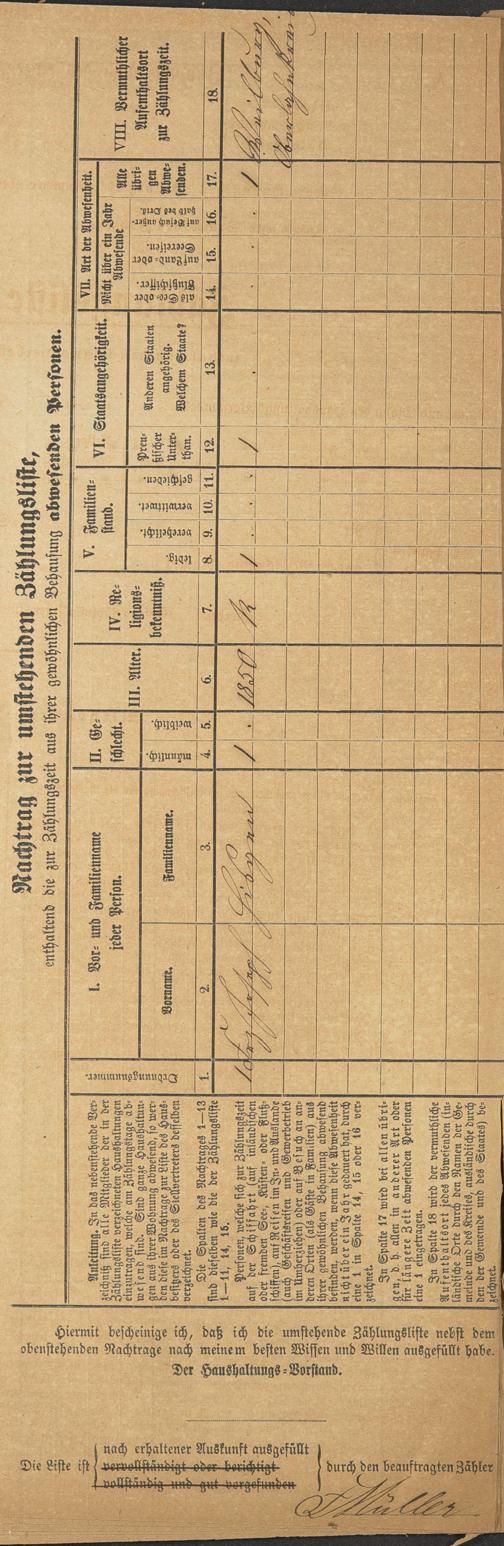 Nachtrag zur umstehenden Zählungsliste,
enthaltend die zur Zählungszeit aus ihrer gewöhnlichen Behausung abwesenden Personen.
Anleitung. In das nebenstehende Ver-
zeichniß sind alle Mitglieder der in der
Zählungsliste verzeichneten Haushaltungen
einzutragen, welche am Zählungstage ab-
wesend sind. Sind ganze Haushaltun-
gen aus ihrer Wohnung abwesend, so wer-
den diese im Nachtrage zur Liste des Haus-
besitzers oder des Stellvertreters desselben
verzeichnet.
Die Spalten des Nachtrages 1—13
sind dieselben wie die der Zählungsliste
1—11, 14, 15.
Personen, welche sich zur Zählungszeit
auf der Schifffahrt (auf inländischen
oder fremden See-, Küsten- oder Fluß-
schiffen), auf Reisen im In- und Auslande
(auch Geschäftsreisen und Gewerbetrieb
im Umherziehen) oder auf Besuch an an-
deren Orten (als Gäste in Familien) aus
ihrer gewöhnlichen Behausung abwesend
befinden, werden, wenn diese Abwesenheit
nicht über ein Jahr gedauert hat, durch
eine 1 in Spalte 14, 15 oder 16 ver-
zeichnet.
In Spalte 17 wird bei allen übri-
gen, d. h. allen in anderer Art oder
für längere Zeit abwesenden Personen
eine 1 eingetragen.
In Spalte 18 wird der vermuthliche
Aufenthaltsort jedes Abwesenden (in-
ländische Orte durch den Namen der Ge-
meinde und des Kreises, ausländische durch
den der Gemeinde und des Staates) be-
zeichnet.
Ordnungsnummer.
I. Vor- und Familienname
jeder Person.
Vorname.
Familienname.
II. Ge-
schlecht.
männlich.
weiblich.
III. Alter.
IV. Re-
ligions-
bekenntniß.
V. Familien-
stand.
ledig.
verehelicht.
verwittwet.
geschieden.
VI. Staatsangehörigkeit.
Preu-
ßischer
Unter-
than.
Anderen Staaten
angehörig.
Welchem Staate?
VII. Art der Abwesenheit.
Nicht über ein Jahr
Abwesende
als See- oder
Flußschiffer.
auf Land- oder
Seereisen.
auf Besuch außer-
halb des Orts.
Alle
übri-
gen
Abwe-
senden.
VIII. Vermuthlicher
Aufenthaltsort
zur Zählungszeit.
1. 2. 3. 4. 5. 6. 7. 8. 9. 10. 11. 12. 13. 14. 15. 16. 17. 18.
1 Joseph 1 1850 K 1 1 1 Weilburg,
Oberlahnkreis
Hiermit bescheinige ich, daß ich die umstehende Zählungsliste nebst dem
obenstehenden Nachtrage nach meinem besten Wissen und Willen ausgefüllt habe.
Der Haushaltungs-Vorstand.
Die Liste ist
nach erhaltener Auskunft ausgefüllt
vervollständigt oder berichtigt
vollständig und gut vorgefunden
durch den beauftragten Zähler
Müller